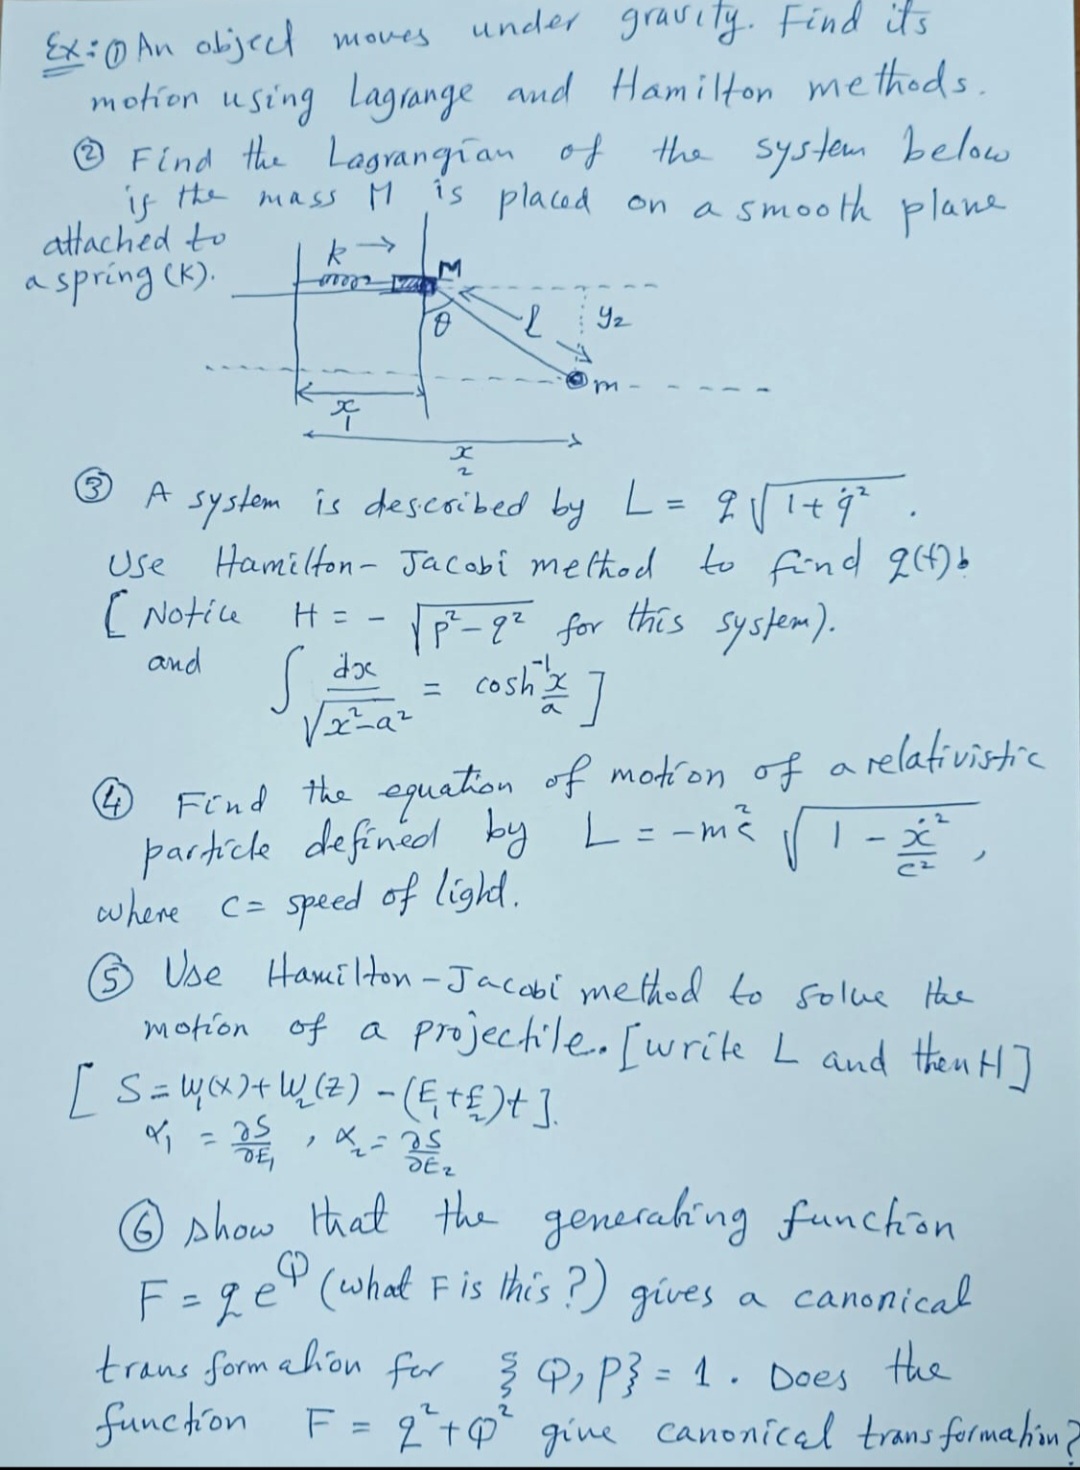 Ex: ① An object moves under gravity. Find its
motion using Lagrange and Hamilton methods.
② Find the Lagrangian of the system below
if the mass M is placed on a smooth plane
attached to
a spring (K).
k →
M
θ
l
y₂
m
x₁
x₂
③ A system is described by L = q√(1+q̇²) .
Use Hamilton-Jacobi method to find q(t)!
[ Notice H = - √(p²-q²) for this system).
and ∫ dx/√(x²-a²) = cosh⁻¹ x/a ]
④ Find the equation of motion of a relativistic
particle defined by L = -mc² √(1 - ẋ²/c²) ,
where c = speed of light.
⑤ Use Hamilton-Jacobi method to solve the
motion of a projectile. [write L and then H]
[ S = W₁(x) + W₂(z) - (E₁+E₂)t ].
α₁ = ∂S/∂E₁ , α₂ = ∂S/∂E₂
⑥ show that the generating function
F = q e^Q (what F is this?) gives a canonical
transformation for {Q, P} = 1 . Does the
function F = q² + Q² give canonical transformation?